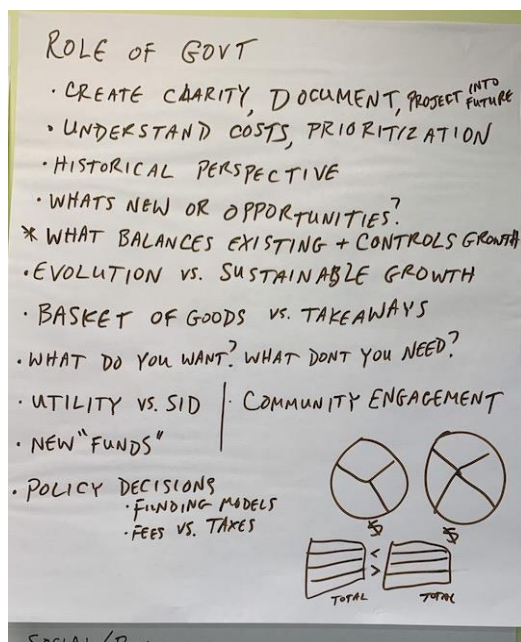 ROLE OF GOVT
· CREATE CLARITY, DOCUMENT, PROJECT INTO FUTURE
· UNDERSTAND COSTS, PRIORITIZATION
· HISTORICAL PERSPECTIVE
· WHATS NEW OR OPPORTUNITIES?
* WHAT BALANCES EXISTING + CONTROLS GROWTH
· EVOLUTION VS. SUSTAINABLE GROWTH
· BASKET OF GOODS VS. TAKEAWAYS
· WHAT DO YOU WANT? WHAT DONT YOU NEED?
· UTILITY VS. SID | · COMMUNITY ENGAGEMENT
· NEW "FUNDS"
· POLICY DECISIONS
· FUNDING MODELS
· FEES VS. TAXES
$ $
<
>
TOTAL TOTAL